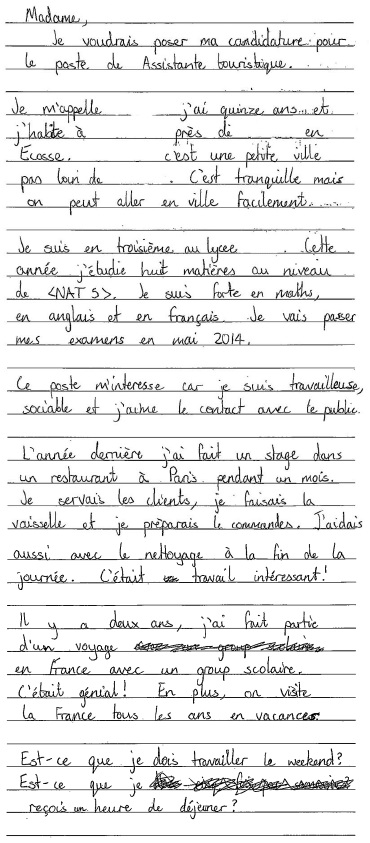 Madame,
Je voudrais poser ma candidature pour
le poste de Assistante touristique.
Je m'appelle j'ai quinze ans et
j'habite à près de en
Ecosse. c'est une petite ville
pas loin de . C'est tranquille mais
on peut aller en ville facilement.
Je suis en troisième au lycee . Cette
année j'étudie huit matières au niveau
de <NAT 5>. Je suis forte en maths,
en anglais et en français. Je vais passer
mes examens en mai 2014.
Ce poste m'interesse car je suis travailleuse,
sociable et j'aime le contact avec le public.
L'année dernière j'ai fait un stage dans
un restaurant à Paris pendant un mois.
Je servais les clients, je faisais la
vaisselle et je préparais le commandes. J'aidais
aussi avec le nettoyage à la fin de la
journée. C'était travail intéressant!
Il y a deux ans, j'ai fait partie
d'un voyage
en France avec un group scolaire.
C'était génial! En plus, on visite
la France tous les ans en vacances.
Est-ce que je dois travailler le weekend?
Est-ce que je
reçois un heure de déjeuner?